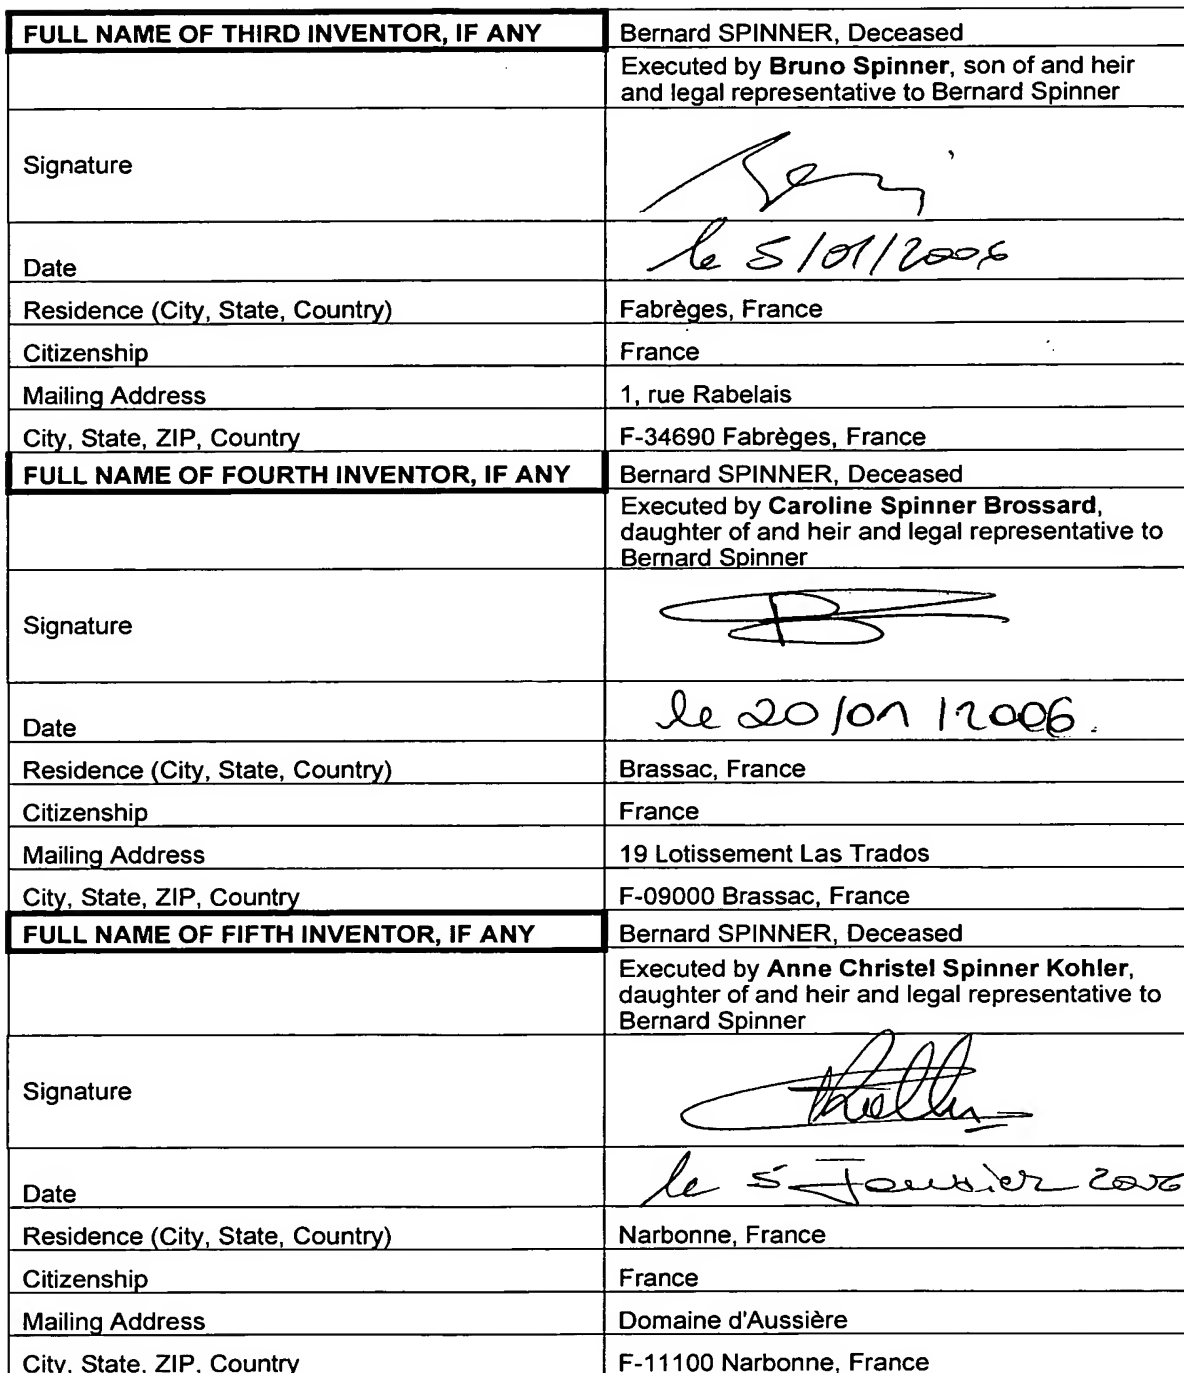 FULL NAME OF THIRD INVENTOR, IF ANY Bernard SPINNER, Deceased
Executed by Bruno Spinner, son of and heir
and legal representative to Bernard Spinner
Signature
Date le 5/01/2006
Residence (City, State, Country) Fabrèges, France
Citizenship France
Mailing Address 1, rue Rabelais
City, State, ZIP, Country F-34690 Fabrèges, France
FULL NAME OF FOURTH INVENTOR, IF ANY Bernard SPINNER, Deceased
Executed by Caroline Spinner Brossard,
daughter of and heir and legal representative to
Bernard Spinner
Signature
Date le 20/01/2006.
Residence (City, State, Country) Brassac, France
Citizenship France
Mailing Address 19 Lotissement Las Trados
City, State, ZIP, Country F-09000 Brassac, France
FULL NAME OF FIFTH INVENTOR, IF ANY Bernard SPINNER, Deceased
Executed by Anne Christel Spinner Kohler,
daughter of and heir and legal representative to
Bernard Spinner
Signature
Date le 5 Janvier 2006
Residence (City, State, Country) Narbonne, France
Citizenship France
Mailing Address Domaine d'Aussière
City, State, ZIP, Country F-11100 Narbonne, France